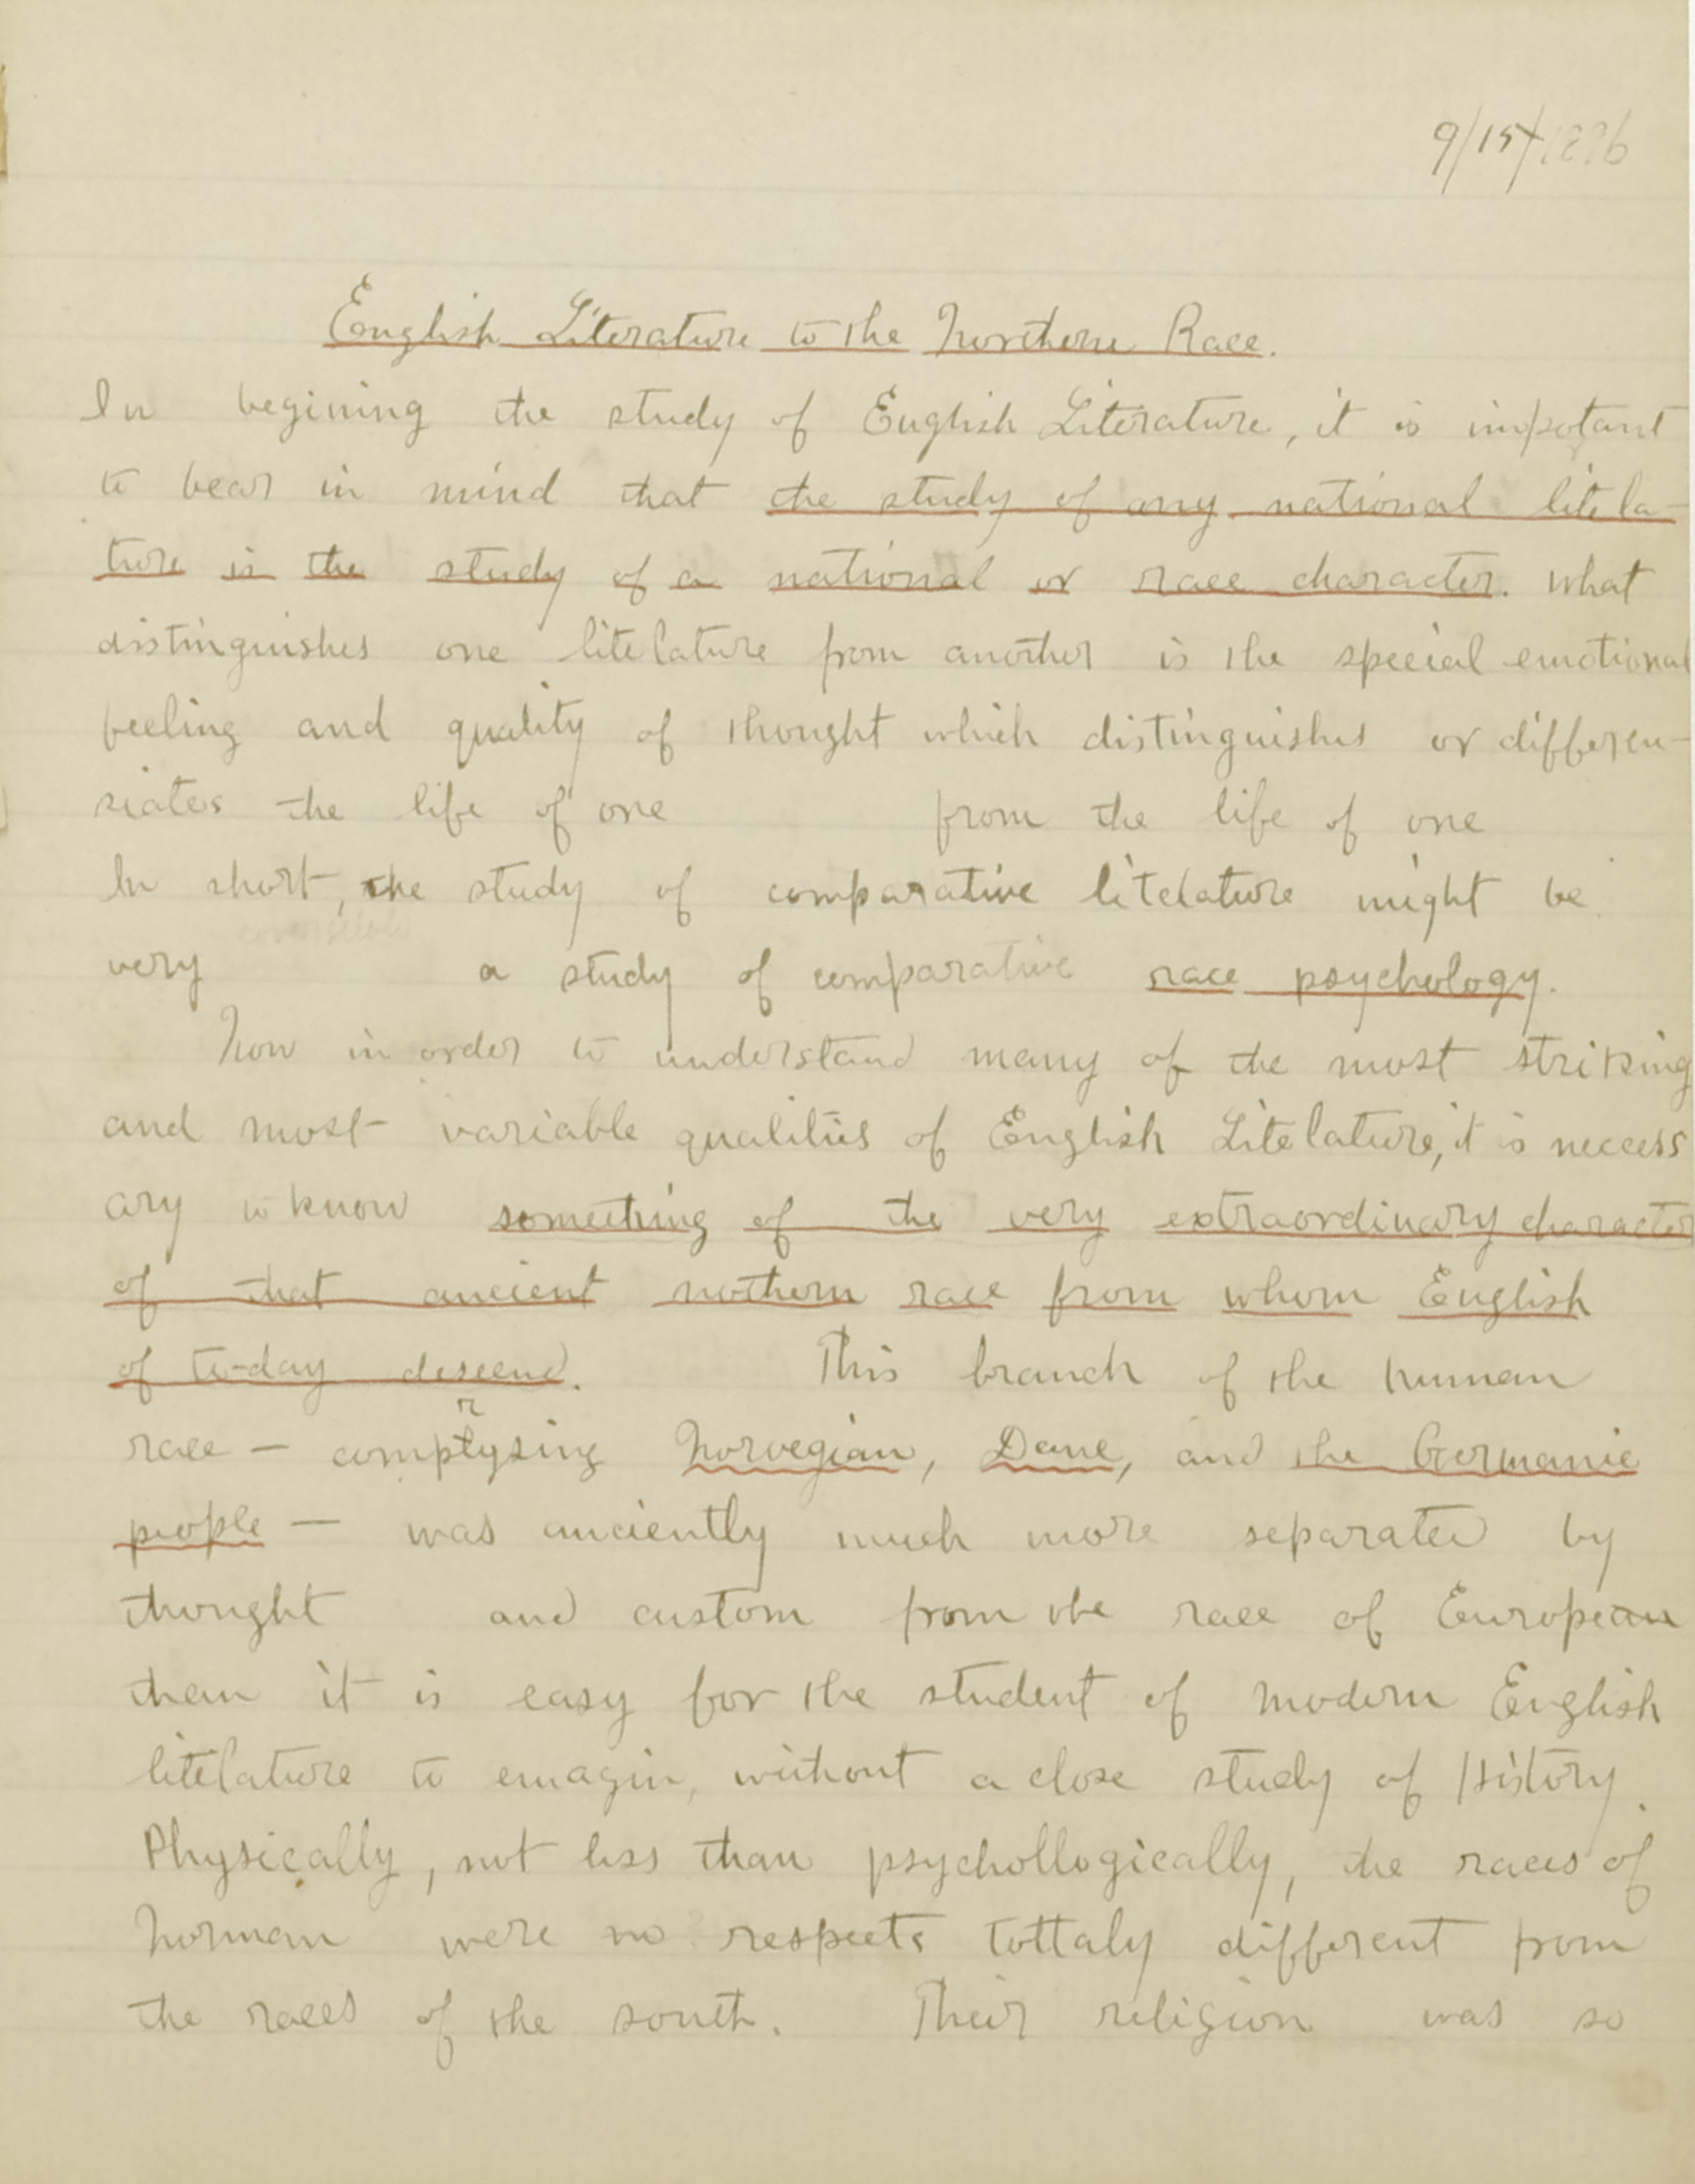 9/15/1896
English Literature to the Northern Race.
In begining the study of English Literature, it is impotant
to bear in mind that the study of any national litela-
ture is the study of a national or race character. What
distinguishes one litelature from another is the special emotional
feeling and quality of thought which distinguishes or differen-
siates the life of one from the life of one
In short, the study of comparative litelature might be
very a study of comparative race psychology.
Now in order to understand many of the most striking
and most variable qualities of English Litelature, it is necess
ary to know something of the very extraordinary character
of that ancient nothern race from whom English
of to-day descend. This branch of the human
race — comprysing Norvegian, Dane, and the Germanic
people — was anciently much more separated by
thought and custom from the race of European
than it is easy for the student of modern English
litelature to emagin, without a close study of History.
Physically, not less than psychollogically, the races of
Norman were no respects tottaly different from
the races of the south. Their religion was so